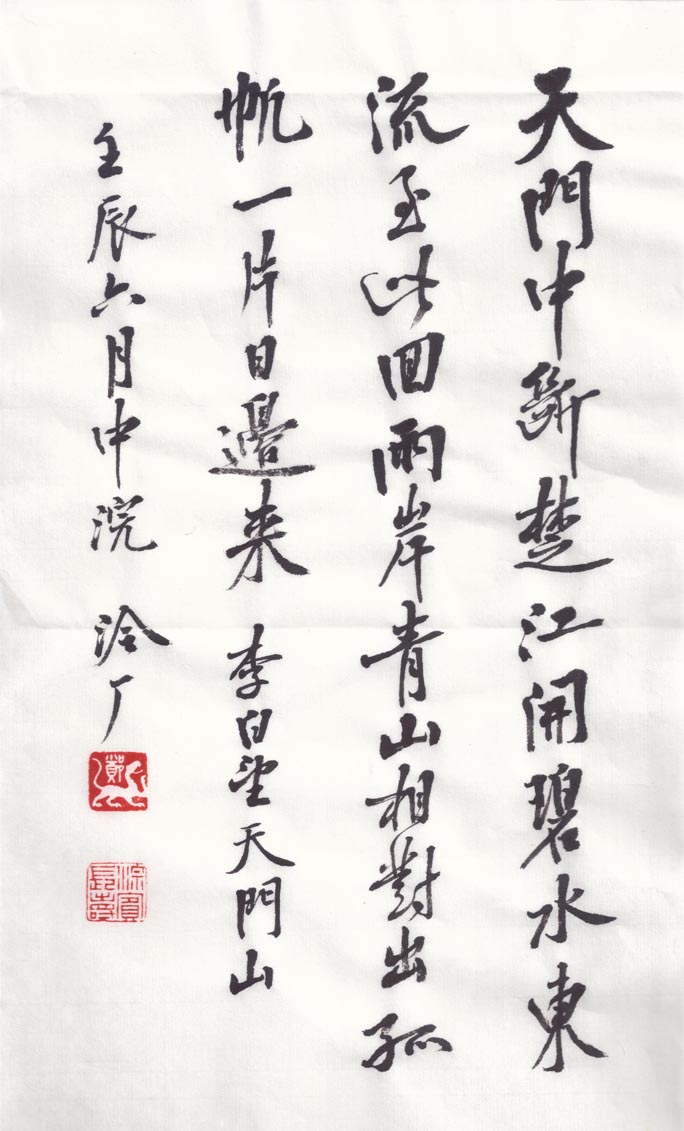 天門中斷楚江開碧水東
流至此囬兩岸青山相對出孤
帆一片日邊来 李白望天門山
壬辰六月中浣 泠厂